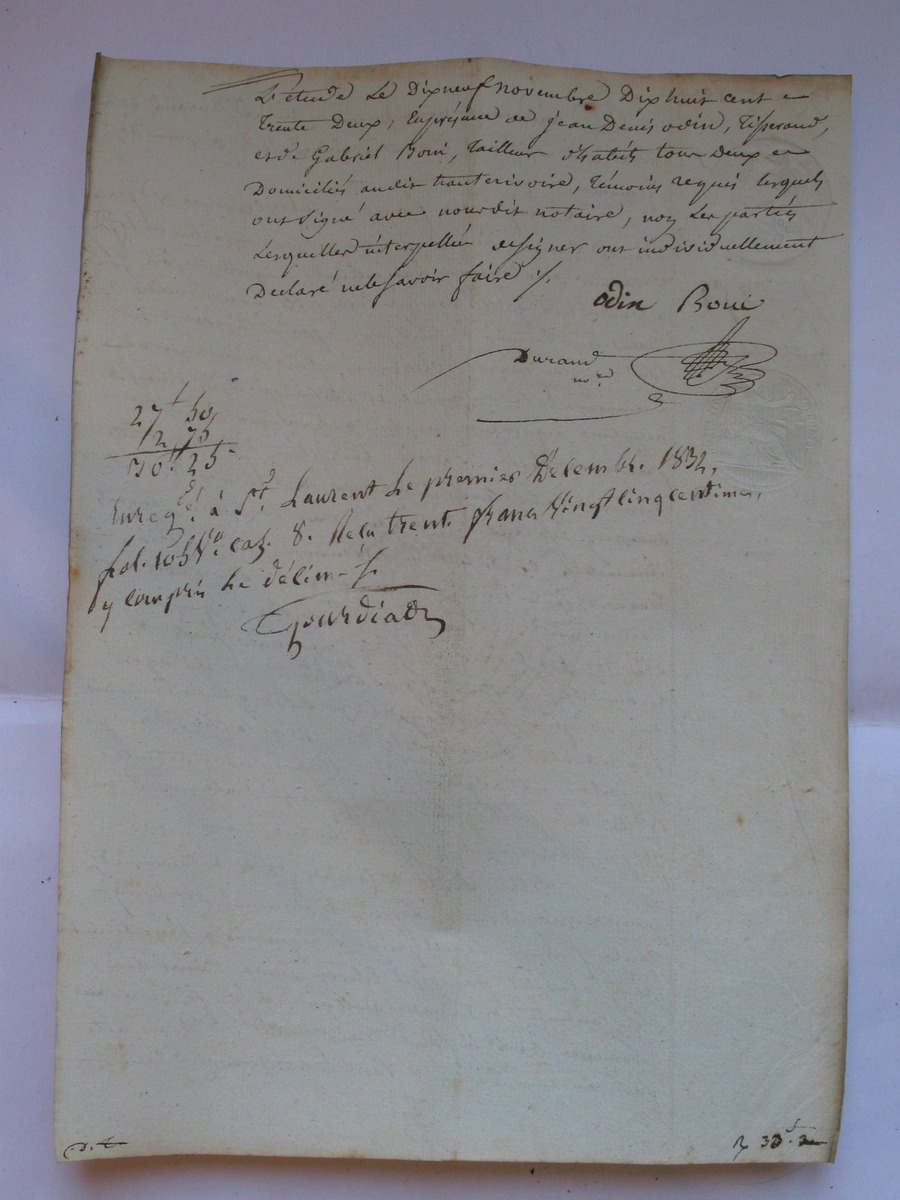 L'étude le Dix neuf novembre Dix huit cent
trente Deux, En présence de jean Denis odin, Tisserand,
et de Gabriel Boui, Tailleur d'habits tous Deux
Domiciliés audit hauterivoire, témoins requis lesquels
ont signé avec nous dit notaire, non les parties
Lesquelles interpellées de signer ont individuellement
Déclaré ne le savoir faire ./.
odin Boui
Durand
n.re
27f 50
2 75
30f 25
Enregé. à St. Laurent le premier Décembre 1832,
fol. 105 Vo. cas. 8. Reçu trente francs Vingt cinq centimes,
y compris le décime ./.
Gourdiat